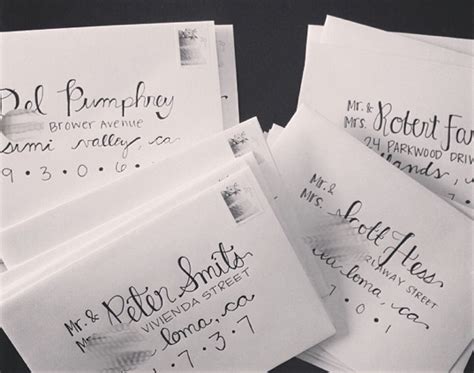 Del Pumphrey
Brower Avenue
simi valley, ca
9 • 3 • 0 • 6 •
Mr. & Mrs. Robert
24 PARKWOOD
Mr. & Mrs. Scott Hess
STREET
loma, ca
7 • 0 • 1
Mr. & Peter Smits
VIVIENDA STREET
loma, ca
1 • 7 • 3 • 7